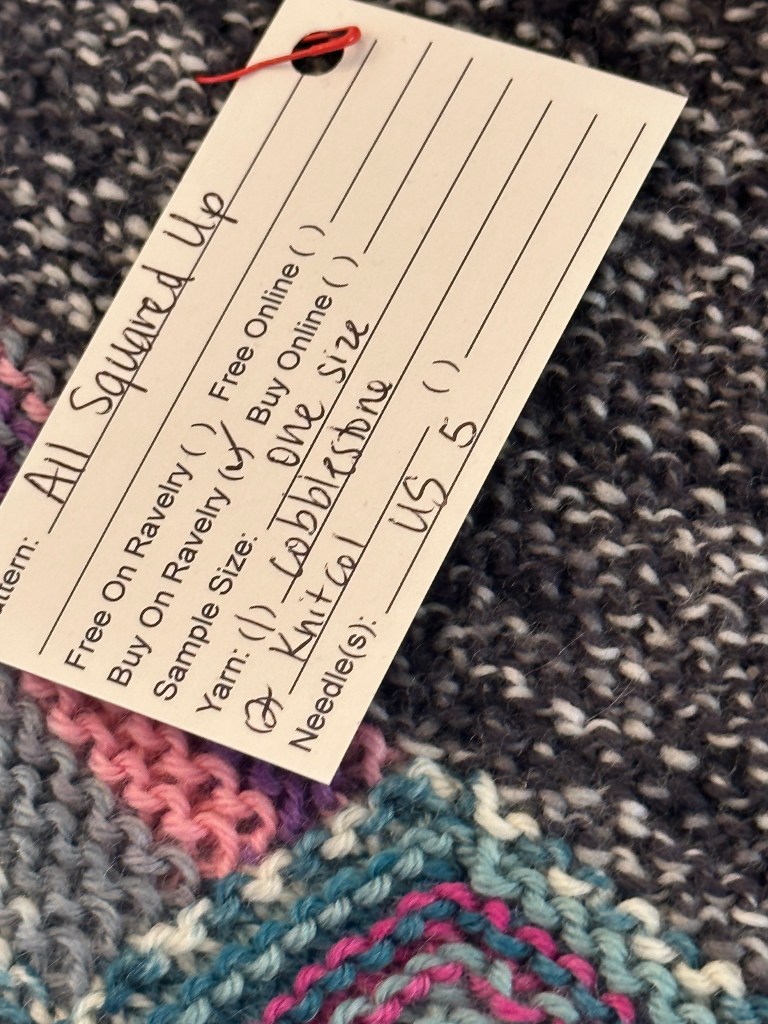 attern: All Squared Up
Free On Ravelry ( ) Free Online ( )
Buy On Ravelry (✓) Buy Online ( )
Sample Size: one size
Yarn: (1) Cobblestone ( )
(2) Knitcol
Needle(s): US 5